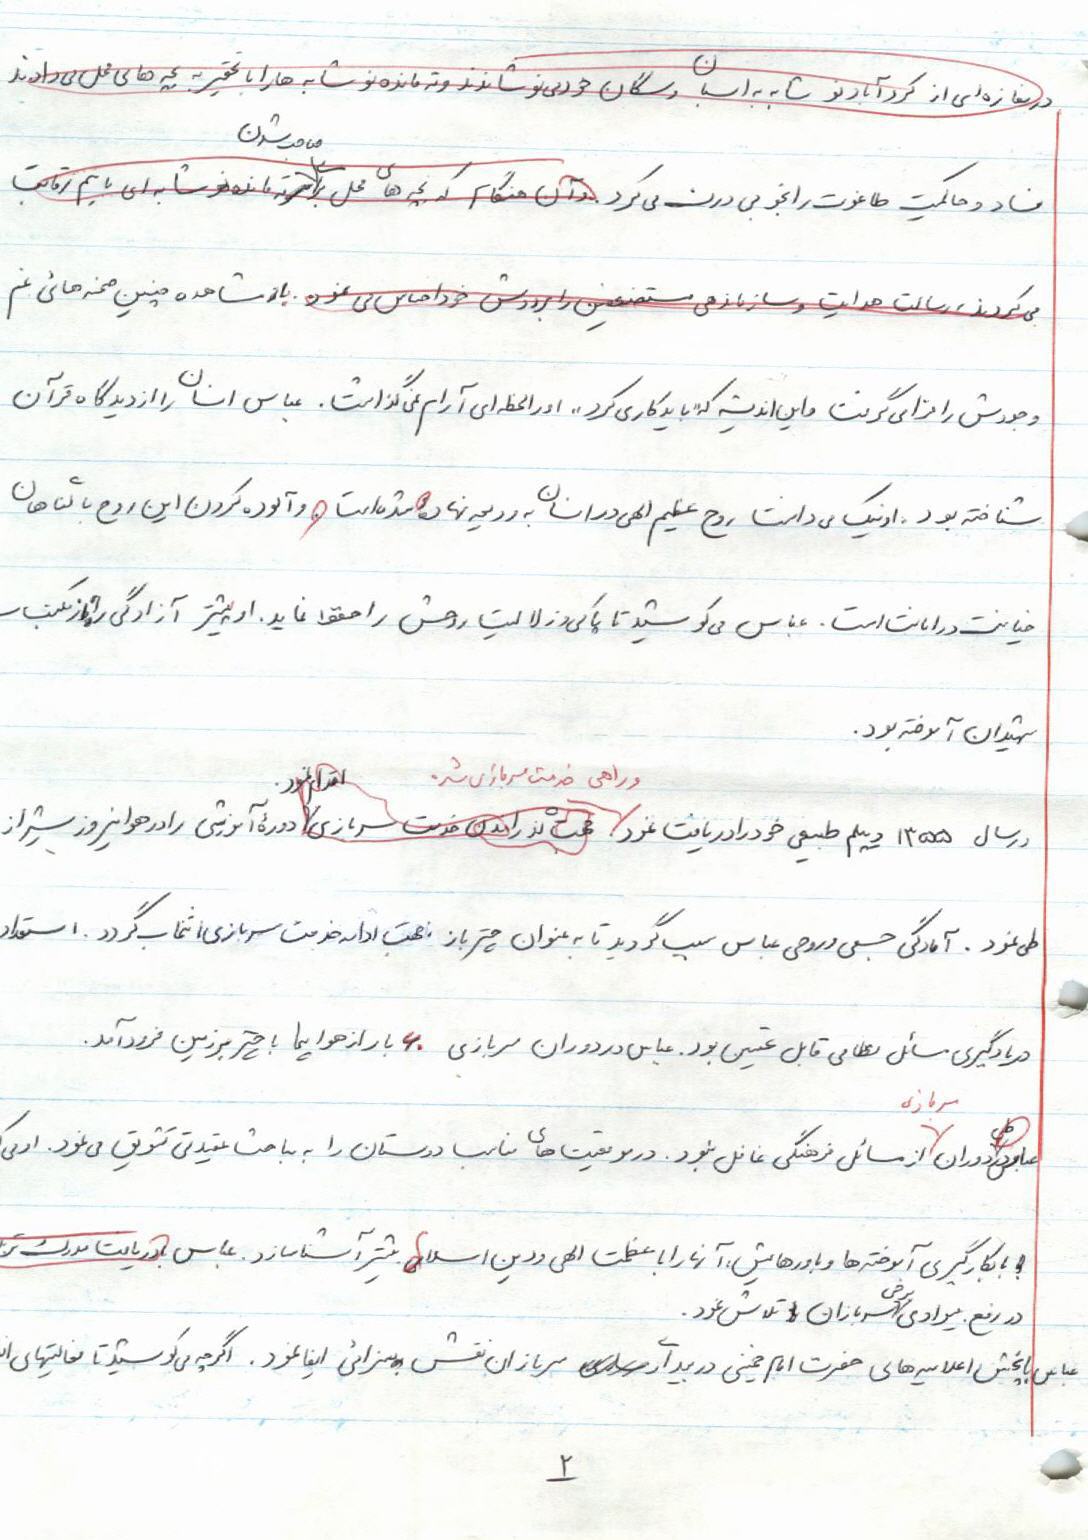 در مغازه‌ای از کردآباد نوشابه به اسبان و سگان خود می‌نوشاندند و ته مانده نوشابه ها را با تحقیر به بچه های محل می‌دادند
صاحب شدن
فساد و حاکمیت طاغوت را نجوی درون می کرد. در آن هنگام که بچه های محل برای ته مانده نوشابه ای با هم رقابت
می کردند، رسالت هدایت و سازماندهی مستضعفین را بر دوش خود احساس می نمود. با مشاهده چنین صحنه هائی غم
وجودش را فرا می گرفت و این اندیشه که «باید کاری کرد» او را لحظه ای آرام نمی گذاشت. عباس انسان را از دیدگاه قرآن
شناخته بود. او نیک می دانست روح عظیم الهی در انسان به ودیعه نهاده شده است و آلوده کردن این روح با گناهان
خیانت در امانت است. عباس می کوشید تا پاکی و زلالیت روحش را حفظ نماید. او پیشتر آزادگی را از مکتب
شهیدان آموخته بود.
و راهی خدمت سربازی شد. اقدام نمود.
در سال ۱۳۵۵ دیپلم طبیعی خود را دریافت نمود جهت گذراندن خدمت سربازی دورهٔ آموزشی را در هوانیروز شیراز
طی نمود. آمادگی جسمی و روحی عباس سبب گردید تا به عنوان چترباز جهت ادامه خدمت سربازی انتخاب گردد. استعداد
در یادگیری مسائل نظامی قابل تحسین بود. عباس در دوران سربازی ۶۰ بار از هواپیما با چتر بر زمین فرود آمد.
سربازی
طی
عباس در دوران از مسائل فرهنگی غافل نبود. در موقعیت های مناسب دوستان را به مباحث عقیدتی تشویق می نمود. او می
با بکارگیری آموخته ها و باورهایش، آنها را با عظمت الهی و دین اسلام بیشتر آشنا سازد. عباس با دریافت مدرک
در رفع بیسوادی برخی سربازان تلاش نمود.
عباس با پخش اعلامیه های حضرت امام خمینی در بیداری سربازان نقش بسزائی ایفا نمود. اگرچه می کوشید تا فعالیتهای
۲